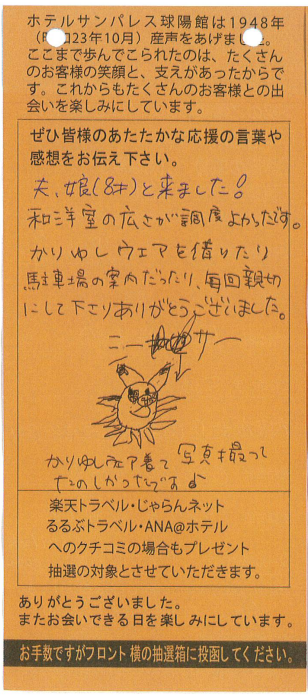 ホテルサンパレス球陽館は1948年
23年10月）産声をあげました。
ここまで歩んでこられたのは、たくさん
のお客様の笑顔と、支えがあったからで
す。これからもたくさんのお客様との出
会いを楽しみにしています。
ぜひ皆様のあたたかな応援の言葉や
感想をお伝え下さい。
夫、娘(8才)と来ました！
和洋室の広さが調度よかったです。
かりゆしウェアを借りたり
駐車場の案内だったり、毎回親切
にして下さりありがとうございました。
かりゆしウェア着て 写真撮って
たのしかったですよ
楽天トラベル・じゃらんネット
るるぶトラベル・ANA@ホテル
へのクチコミの場合もプレゼント
抽選の対象とさせていただきます。
ありがとうございました。
またお会いできる日を楽しみにしています。
お手数ですがフロント横の抽選箱に投函してください。